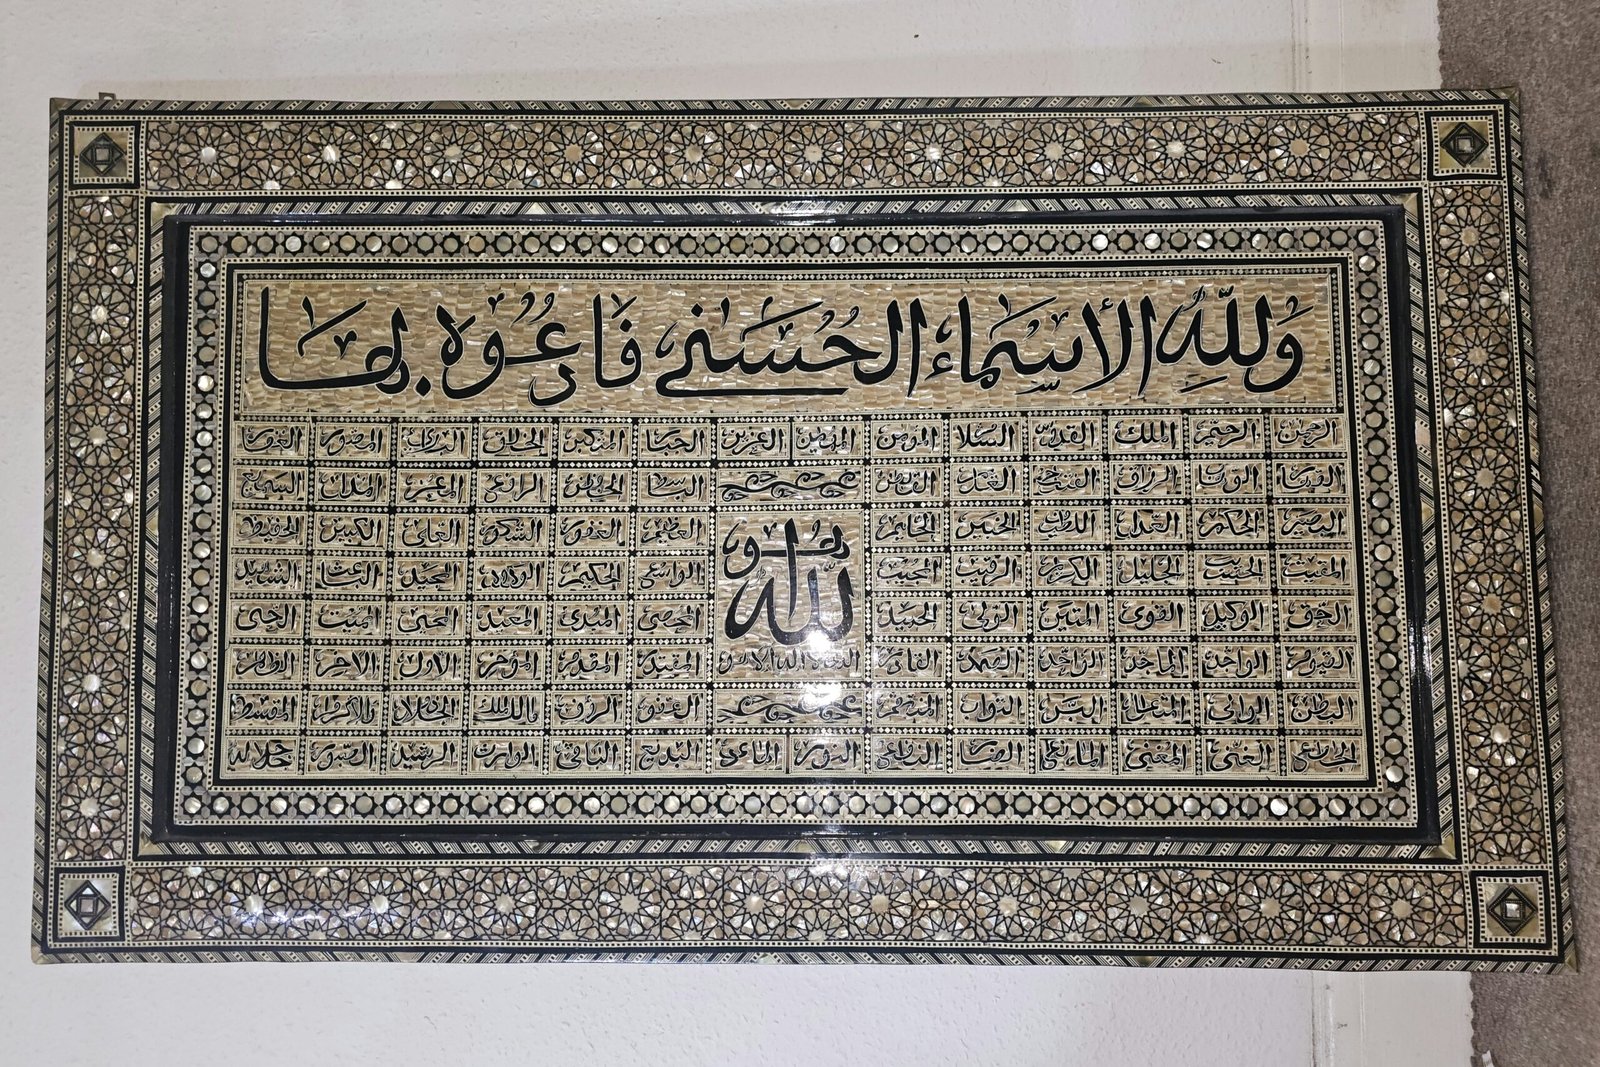 وَلِلَّهِ الأَسْمَاءُ الْحُسْنَى فَادْعُوهُ بِهَا
الرحمن الرحيم الملك القدوس السلام المؤمن المهيمن العزيز الجبار المتكبر الخالق البارئ المصور الغفار
القهار الوهاب الرزاق الفتاح العليم القابض الباسط الخافض الرافع المعز المذل السميع
البصير الحكم العدل اللطيف الخبير الحليم العظيم الغفور الشكور العلي الكبير الحفيظ
المقيت الحسيب الجليل الكريم الرقيب المجيب الواسع الحكيم الودود المجيد الباعث الشهيد
هو الله
الحق الوكيل القوي المتين الولي الحميد المحصي المبدئ المعيد المحيي المميت الحي
القيوم الواجد الماجد الواحد الصمد القادر الذي لا اله الا هو المقتدر المقدم المؤخر الاول الاخر الظاهر
الباطن الوالي المتعال البر التواب المنتقم العفو الرؤف مالك الملك ذو الجلال والاكرام المقسط
الجامع الغني المغني المانع الضار النافع النور الهادي البديع الباقي الوارث الرشيد الصبور جل جلاله